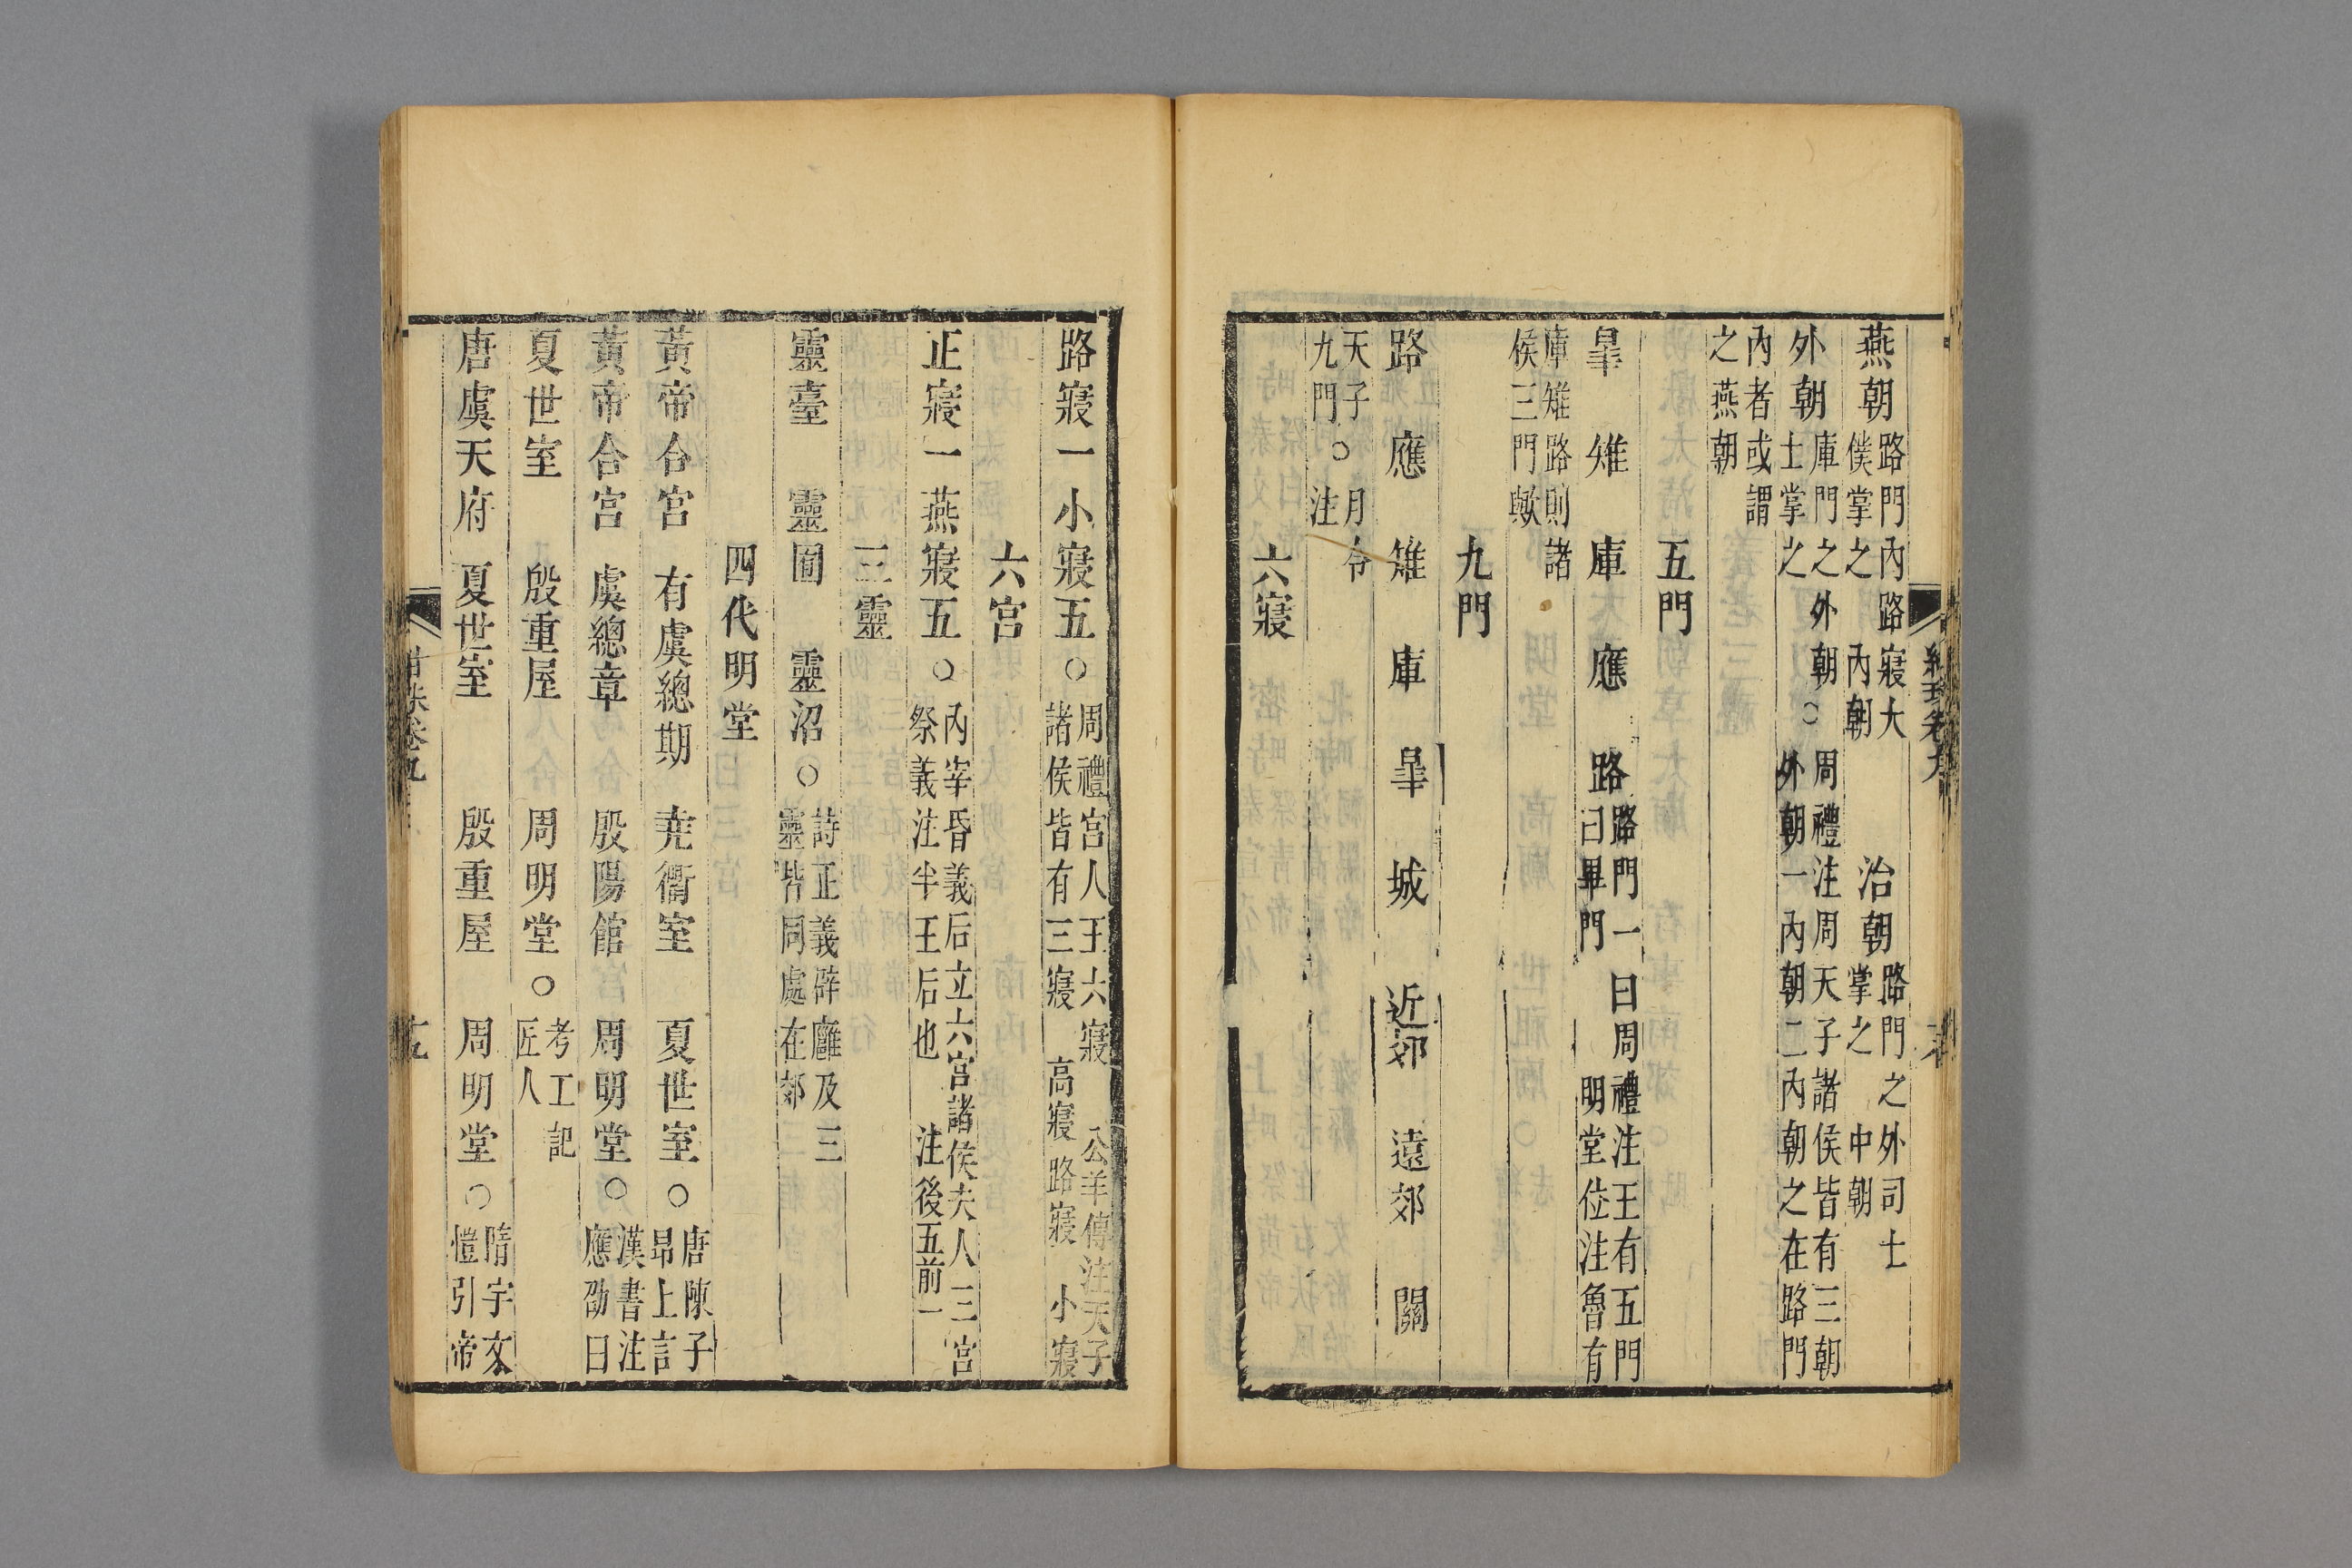 燕朝路門內路寢大僕掌之 內朝 治朝路門之外司士掌之 中朝
外朝庫門之外朝士掌之○周禮注周天子諸侯皆有三朝外朝一內朝二內朝之在路門
內者或謂之燕朝
五門
皐 雉 庫 應 路路門一曰畢門 曰周禮注王有五門明堂位注魯有
庫雉路則諸侯三門歟
九門
路 應 雉 庫 皐 城 近郊 遠郊 關
天子九門○月令注
六寢
路寢一小寢五○周禮宮人王六寢諸侯皆有三寢 公羊傳注天子高寢路寢小寢
六宮
正寢一燕寢五○內宰昏義后立六宮諸侯夫人三宮祭義注半王后也 注後五前一
三靈
靈臺 靈囿 靈沼○詩正義辟廱及三靈皆同處在郊
四代明堂
黃帝合宮 有虞總期 堯衢室 夏世室○唐陳子昂上言
黃帝合宮 虞總章 殷陽館 周明堂○漢書注應劭曰
夏世室 殷重屋 周明堂○考工記匠人
唐虞天府 夏世室 殷重屋 周明堂○隋宇文愷引帝